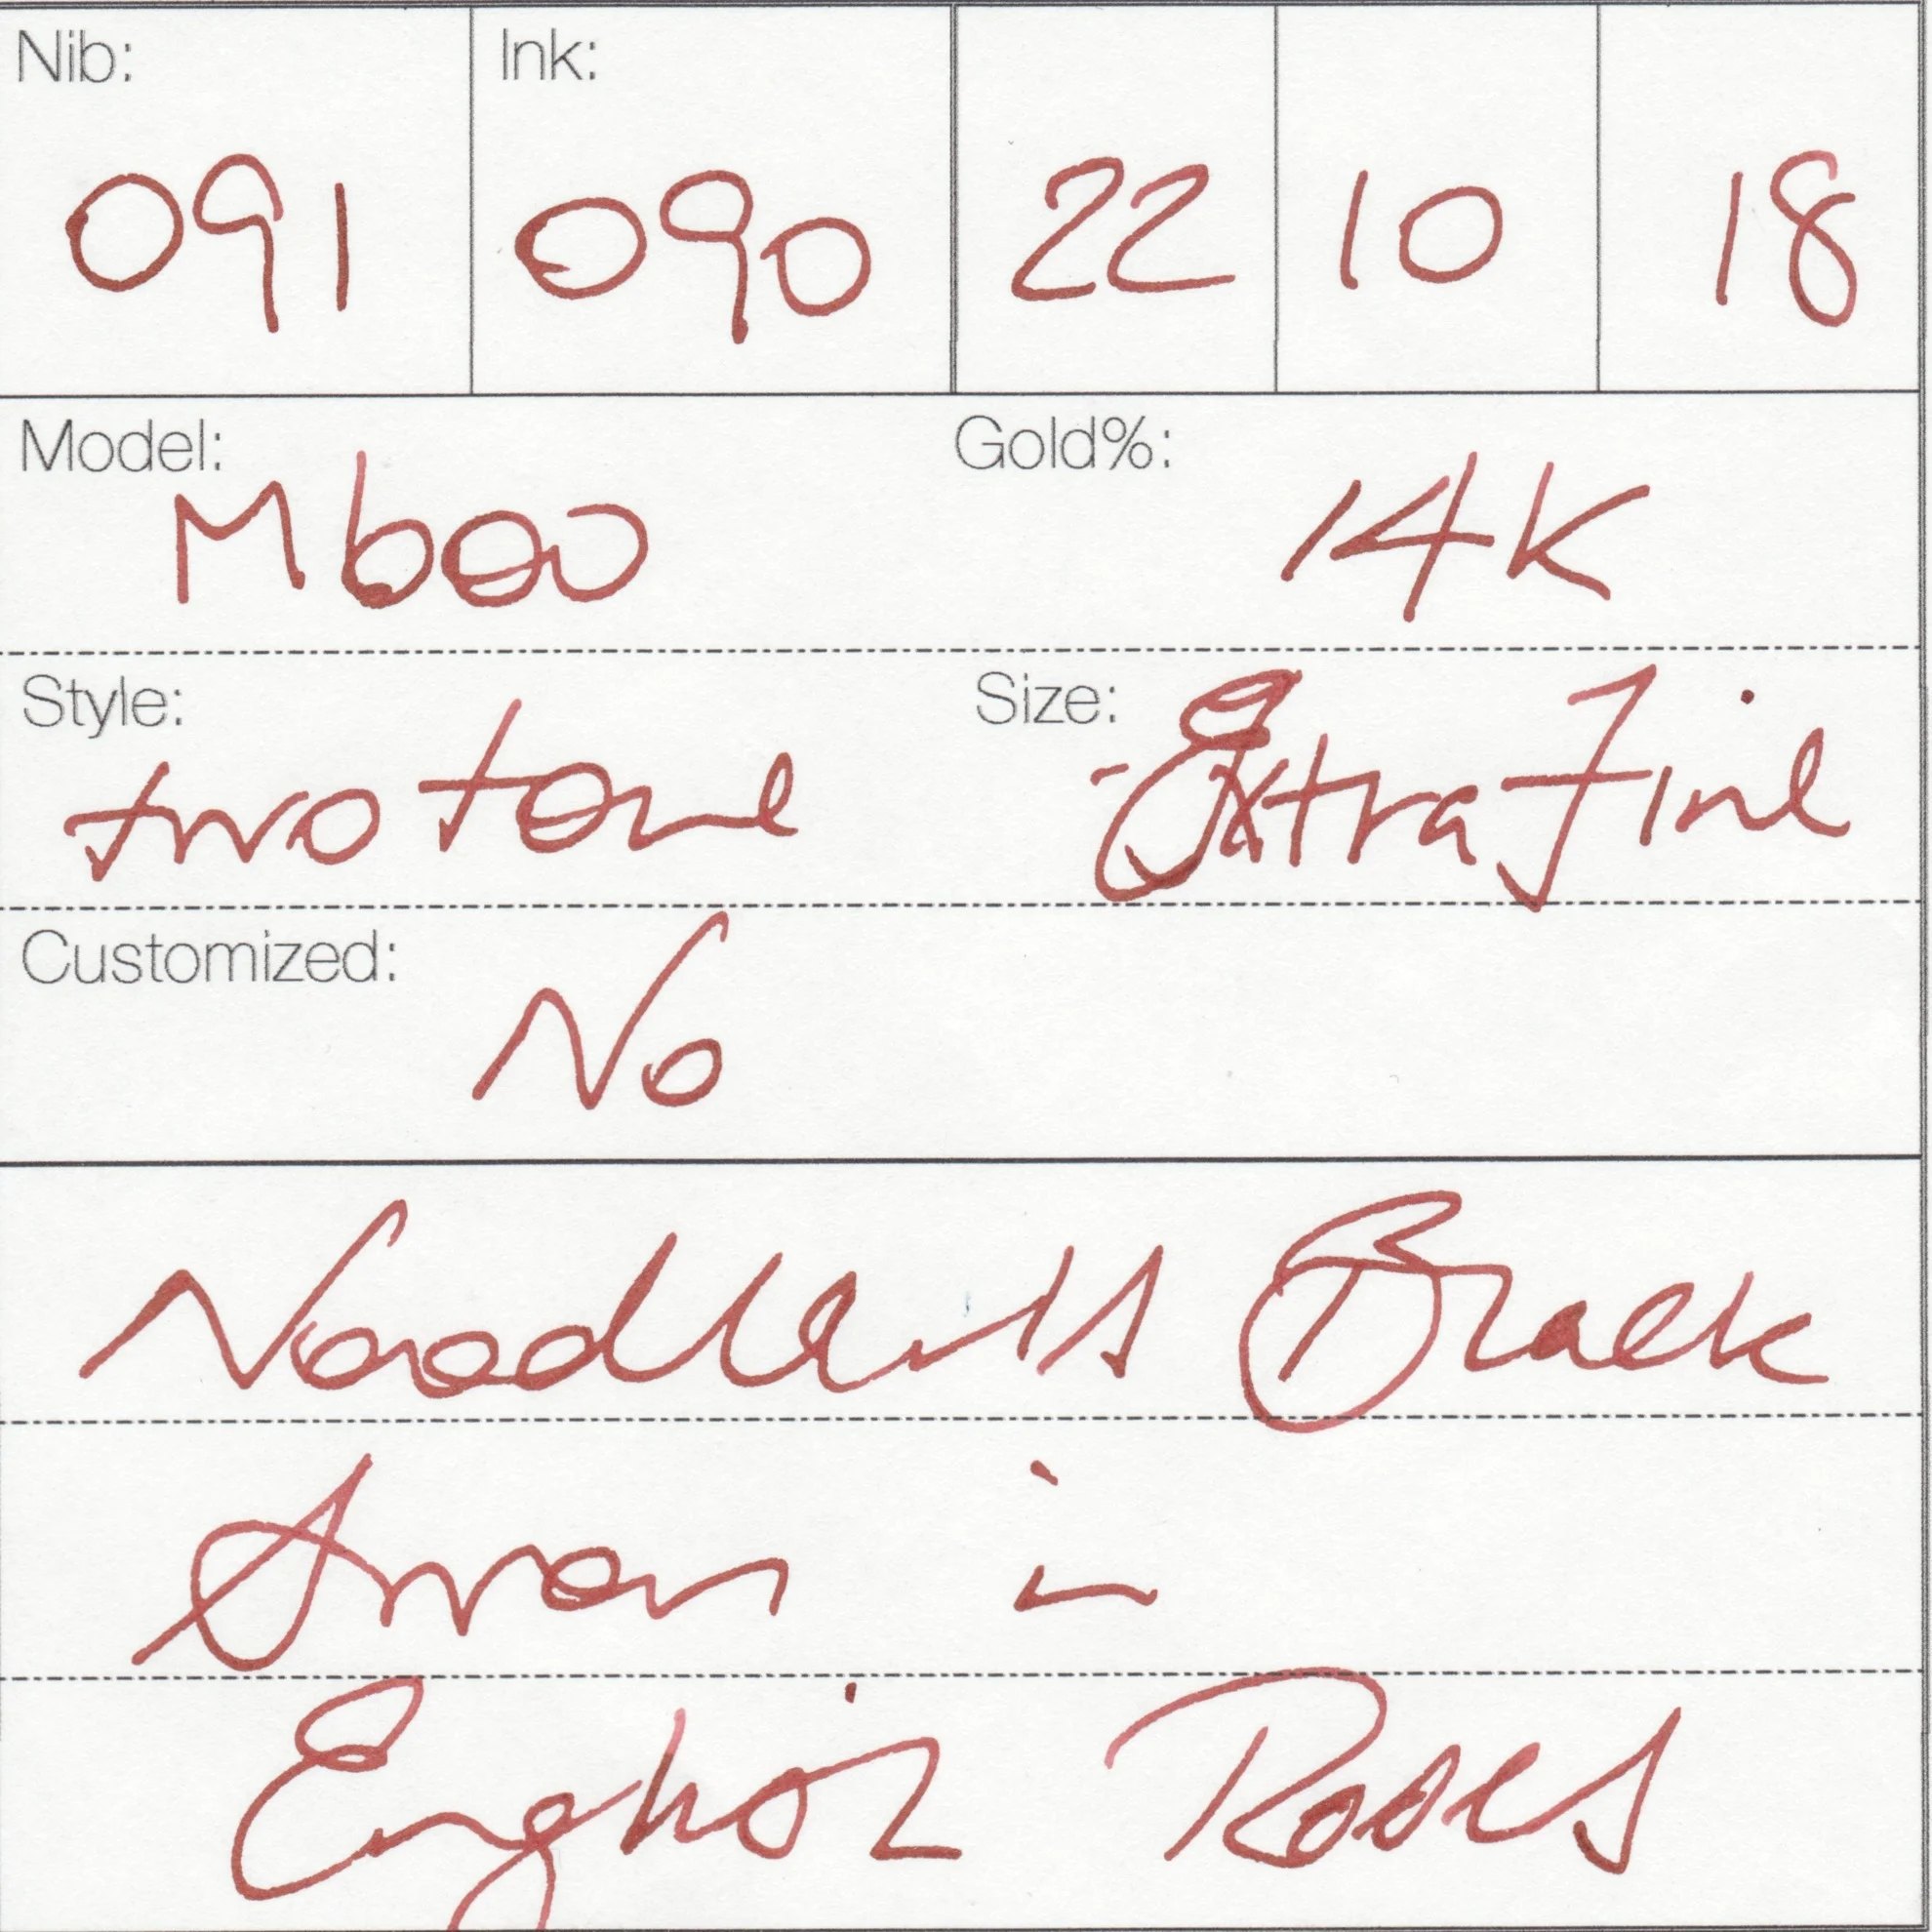 Nib: Ink:
091 090 22 10 18
Model: M600 Gold%: 14K
Style: two tone Size: Extra Fine
Customized: No
Noodler's Black
Swan in
English Roses